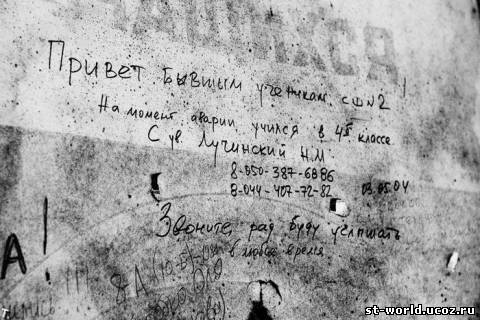 УЧАЩИХСЯ
Привет бывшим ученикам сш№2!
На момент аварии учился в 4Б классе
С ув. Лучинский Н.М.
8-050-387-6886
8-044-407-72-82 03.05.04
Звоните, рад буду услышать
в любое время
А!
!!!
8А
st-world.ucoz.ru